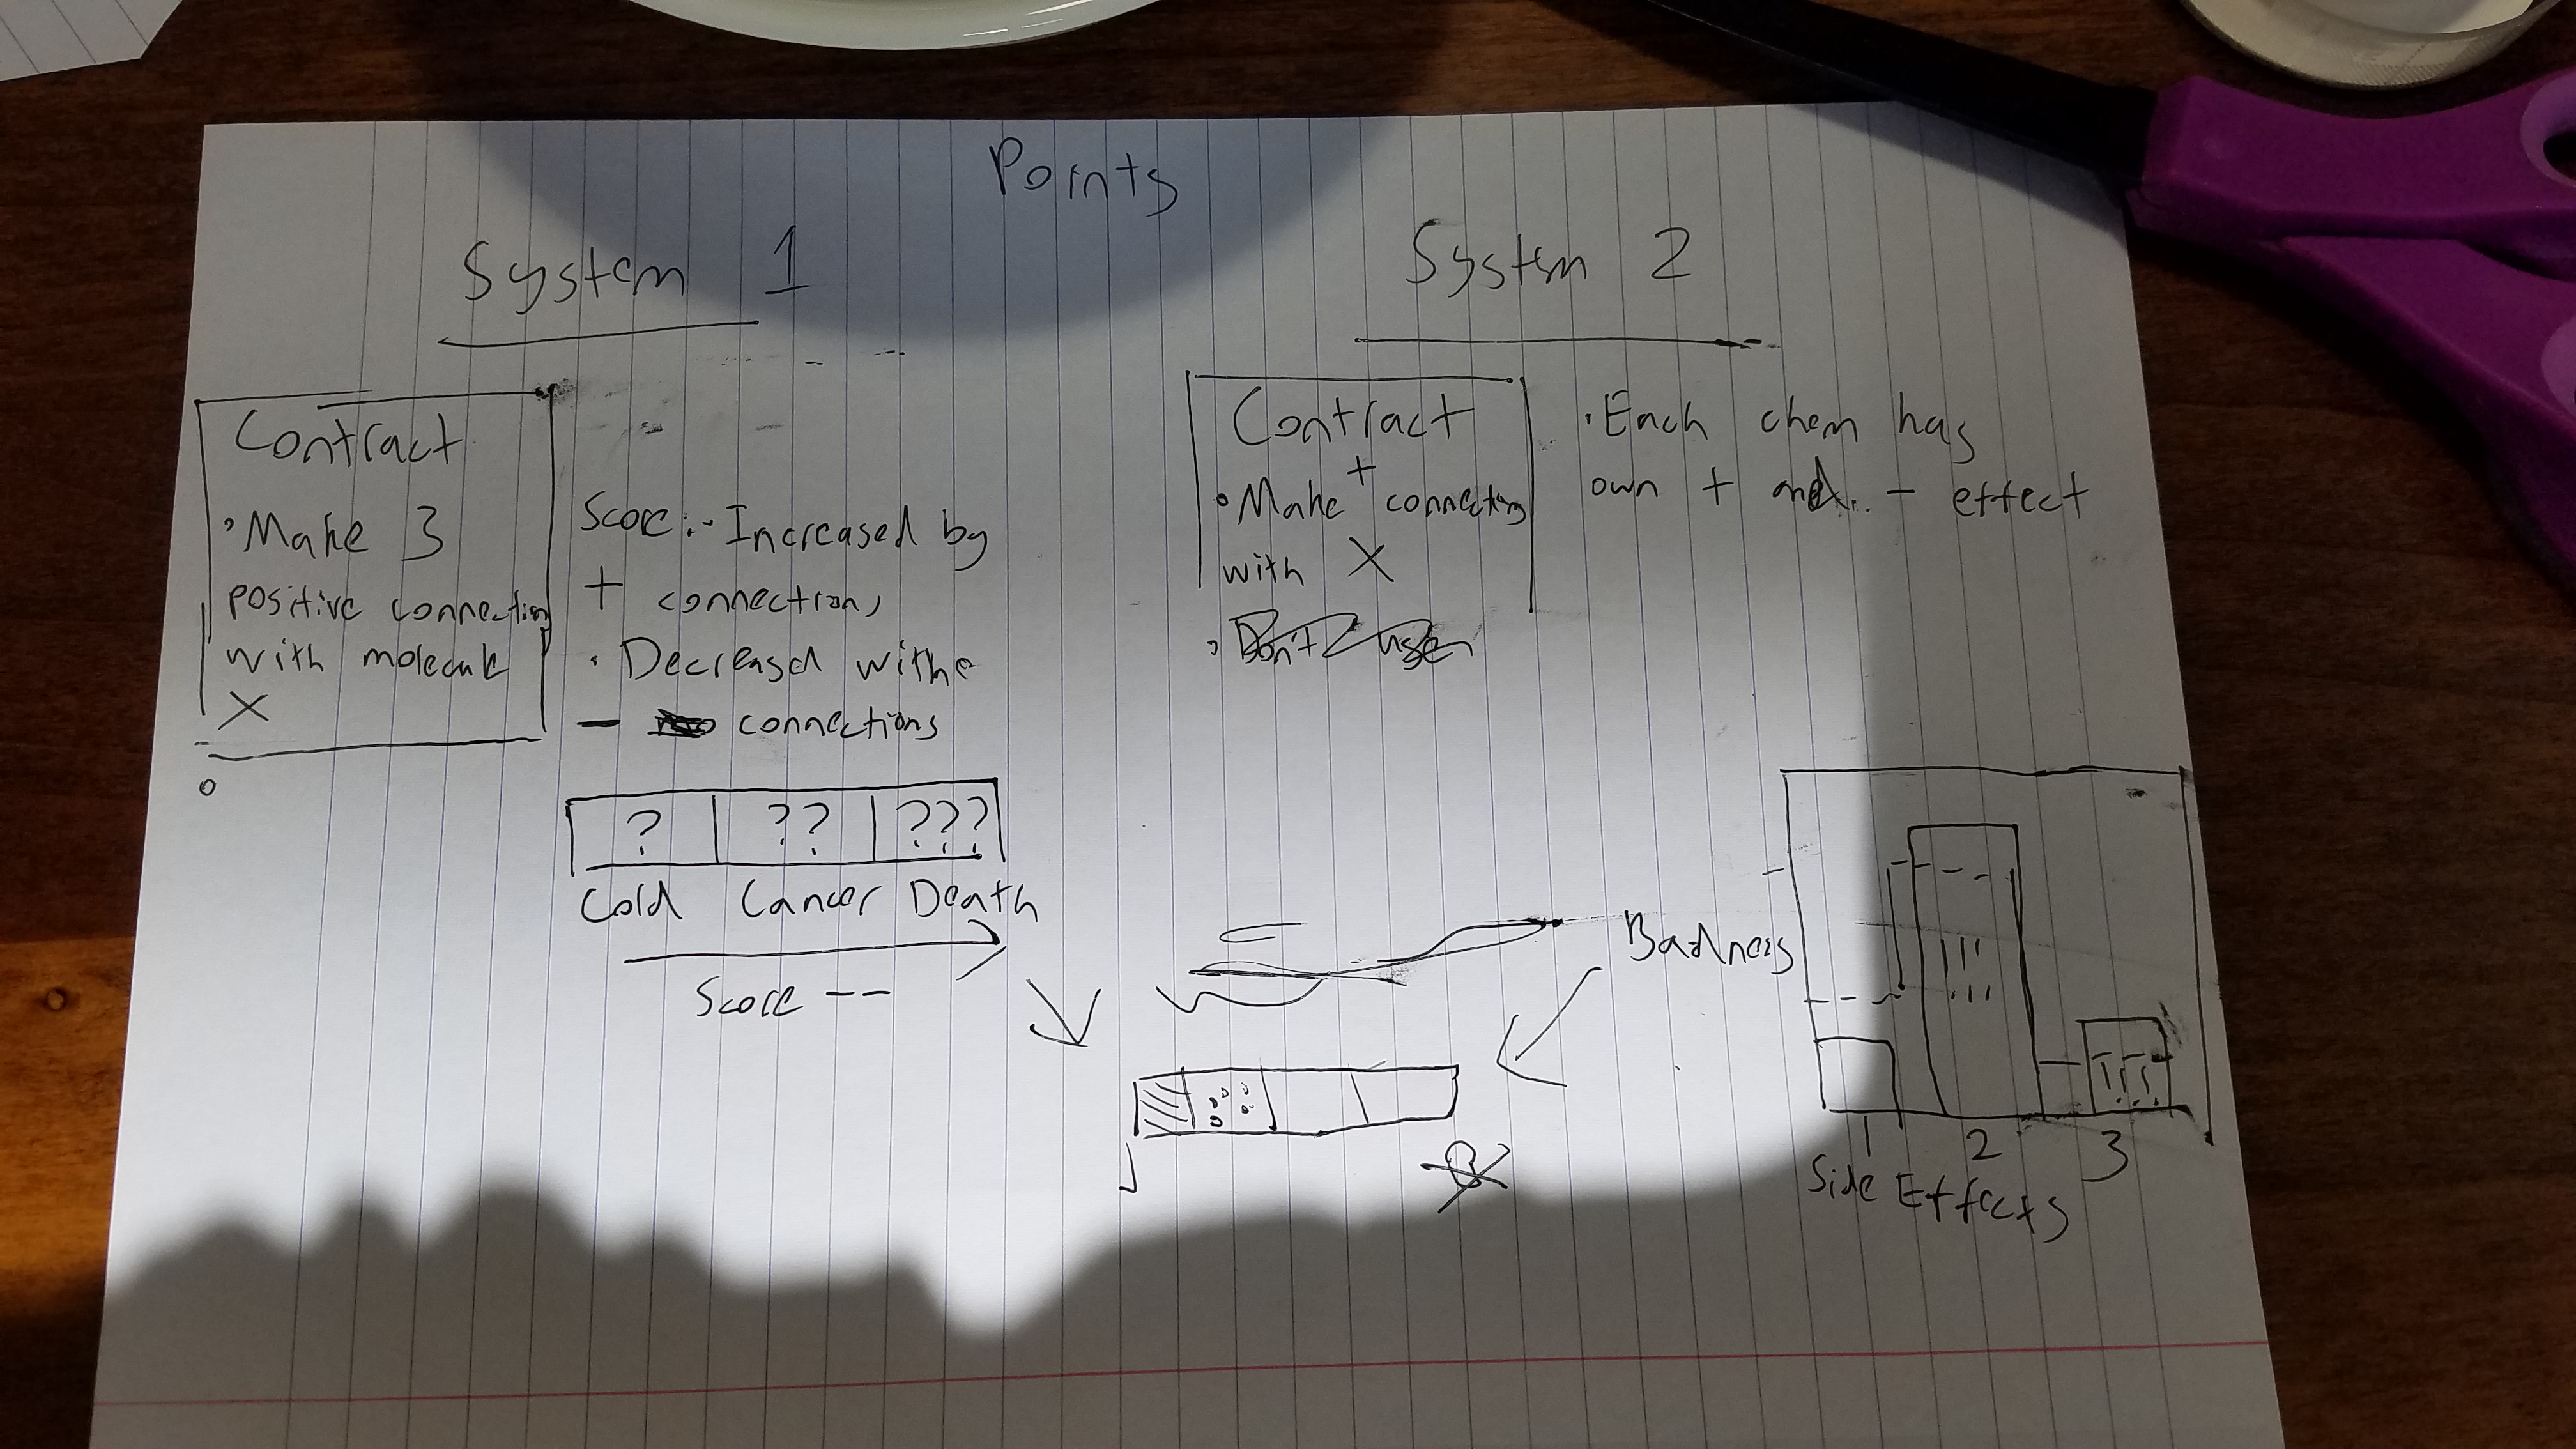 Points
System 1
Contract
• Make 3
positive connection
with molecule
X
Score: • Increased by
+ connection,
• Decreased with
- connections
? ?? ???
Cold Cancer Death
Score --
System 2
Contract
• Make + connection
with X
• Each chem has
own + and - effect
Badness
1 2 3
Side Effects